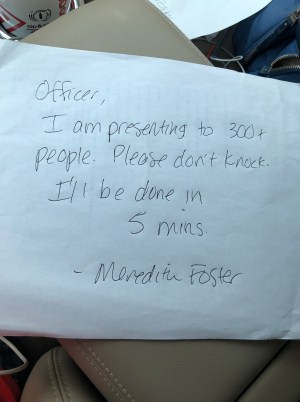 Officer,
I am presenting to 300+
people. Please don't knock.
I'll be done in
5 mins.
- Meredith Foster